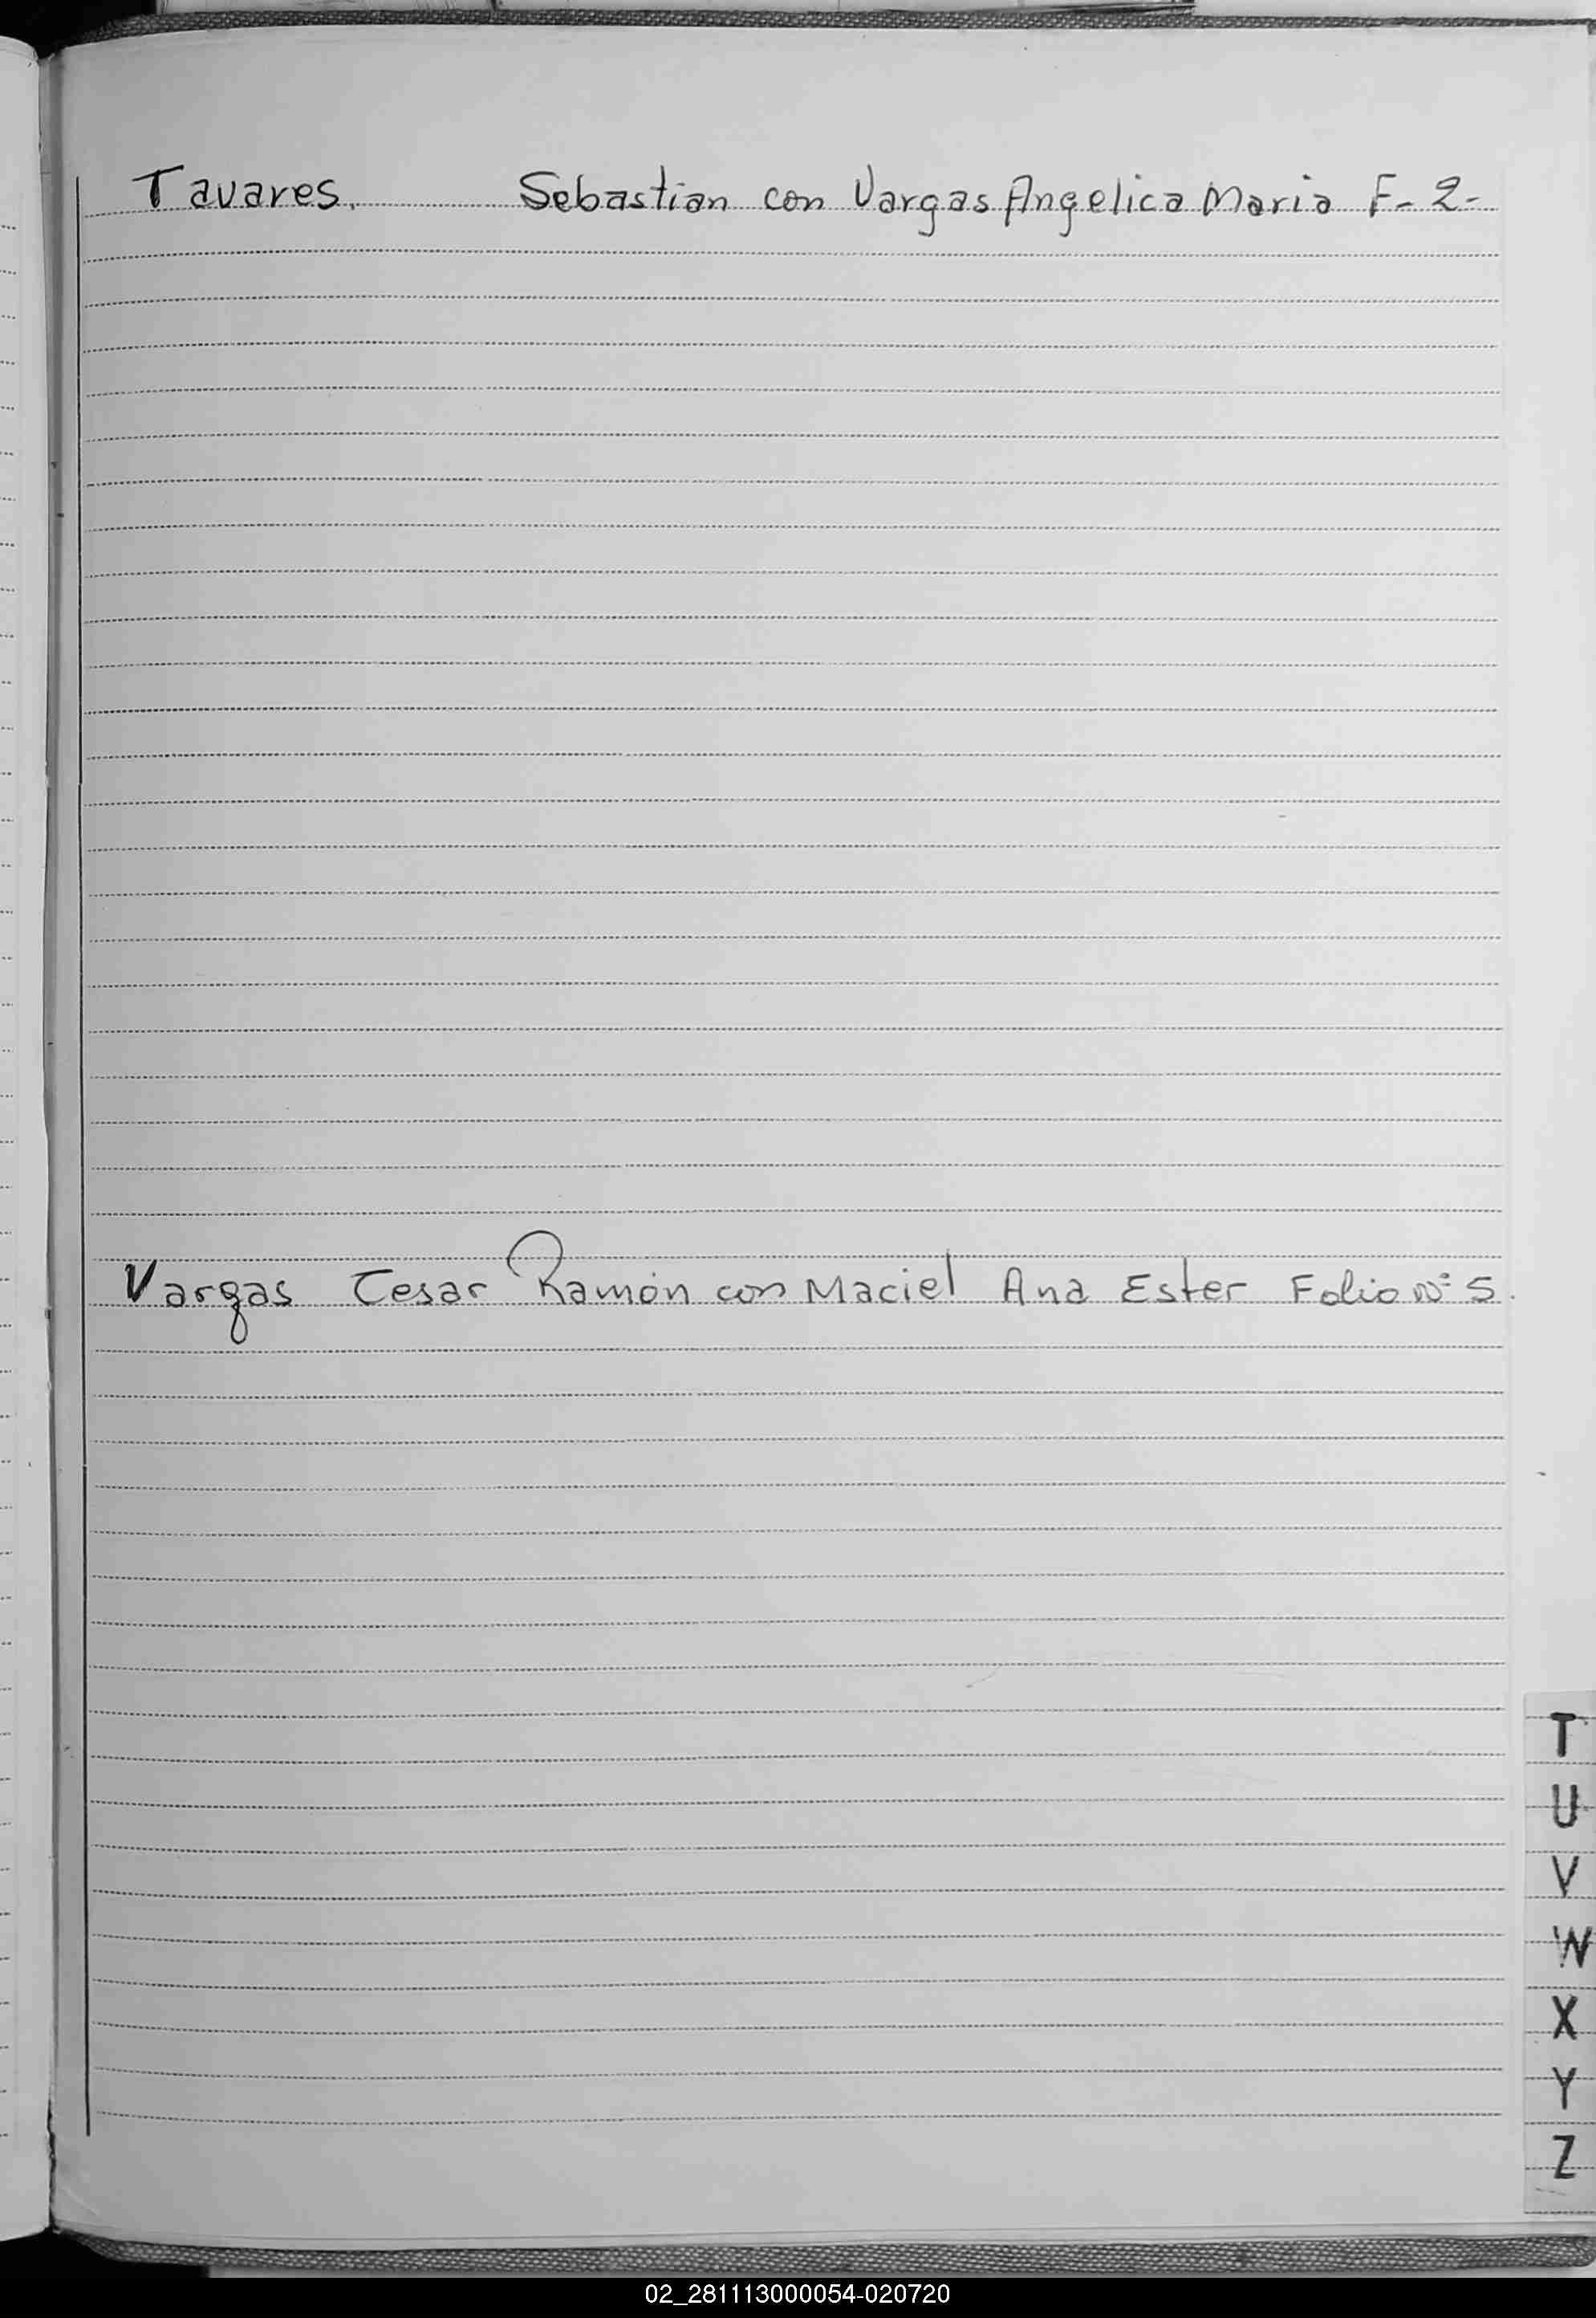 Tavares. Sebastian con Vargas Angelica Maria F- 2-
Vargas Cesar Ramón con Maciel Ana Ester Folio Nº 5.
T
U
V
W
X
Y
Z
02_281113000054-020720